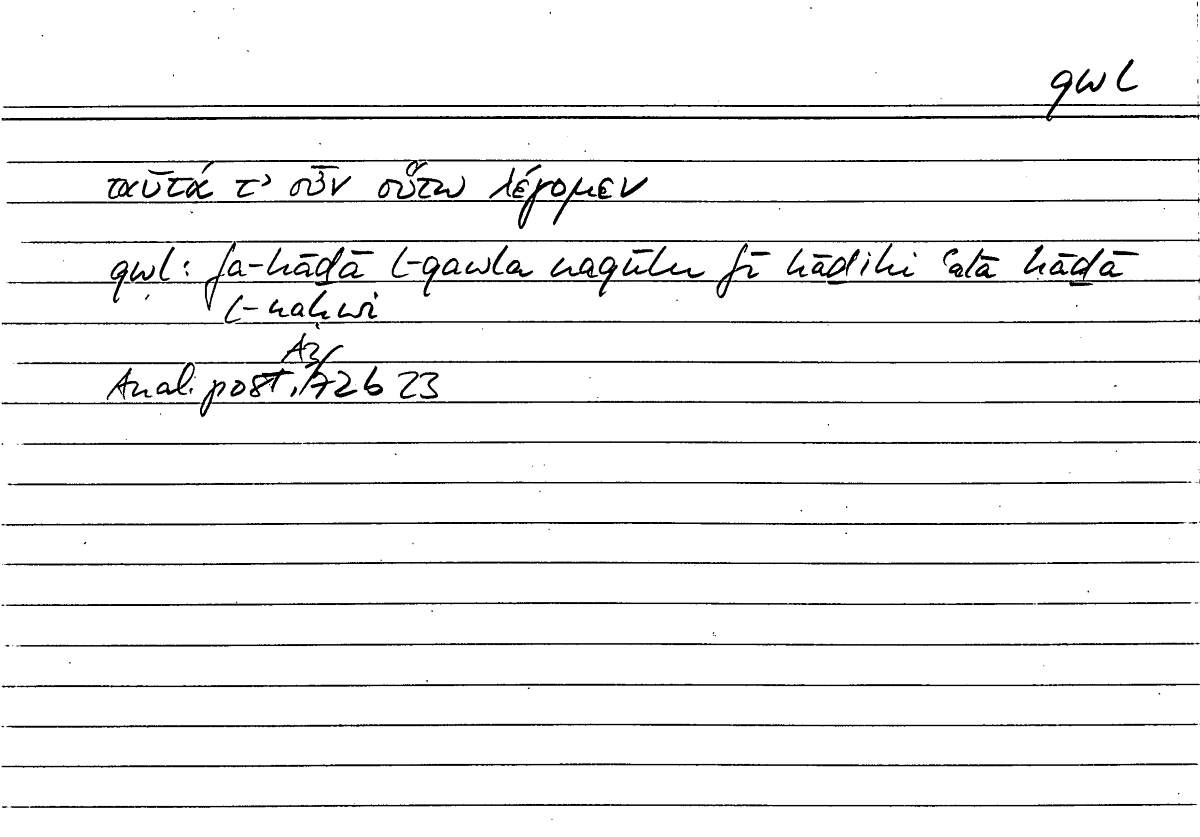 qwl
ταῦτά τ' οὖν οὕτω λέγομεν
qwl: fa-hāḏā l-qawla naqūlu fī hāḏihi ʿalā hāḏā
l-naḥwi
A3
Anal. post., 72 b 23